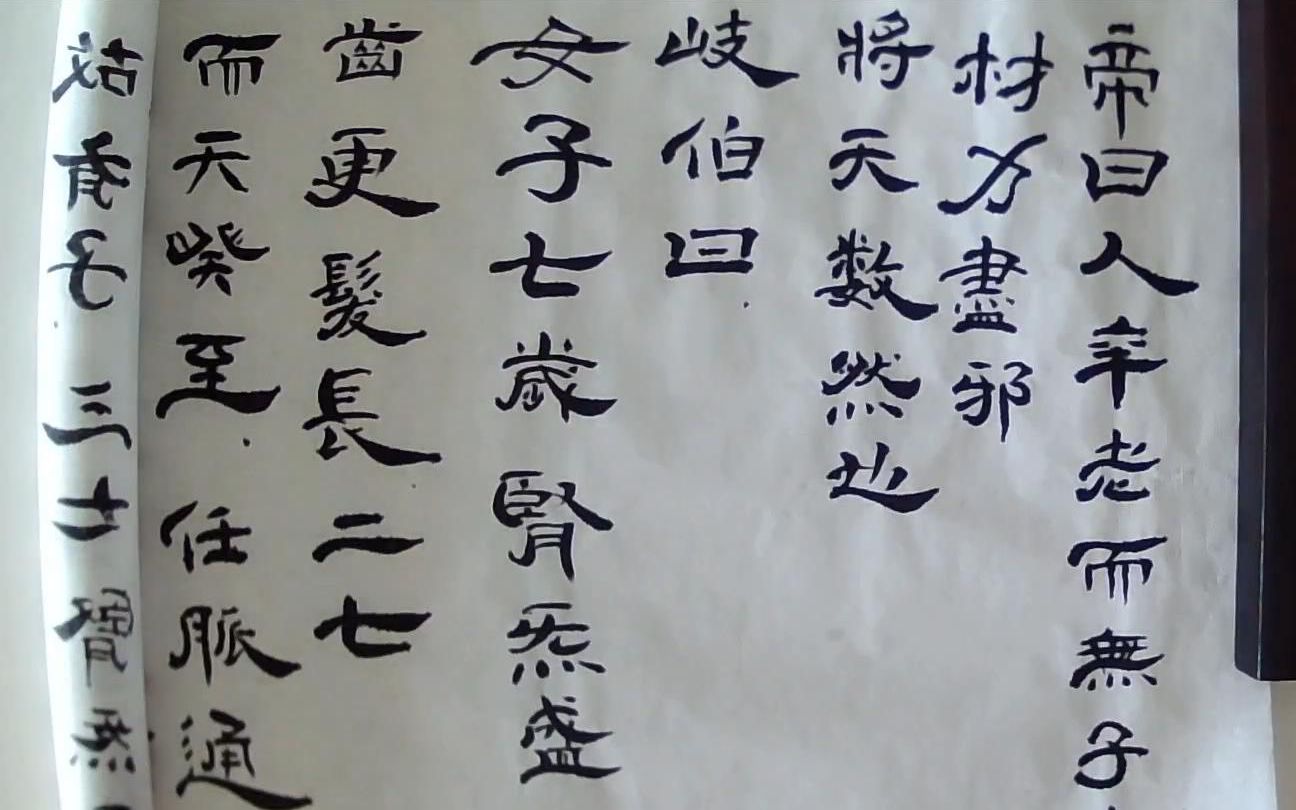 帝曰人年老而無子
材力盡邪
將天數然也
岐伯曰
女子七歲腎炁盛
齒更髮長二七
而天癸至任脈通
故有子三七腎炁